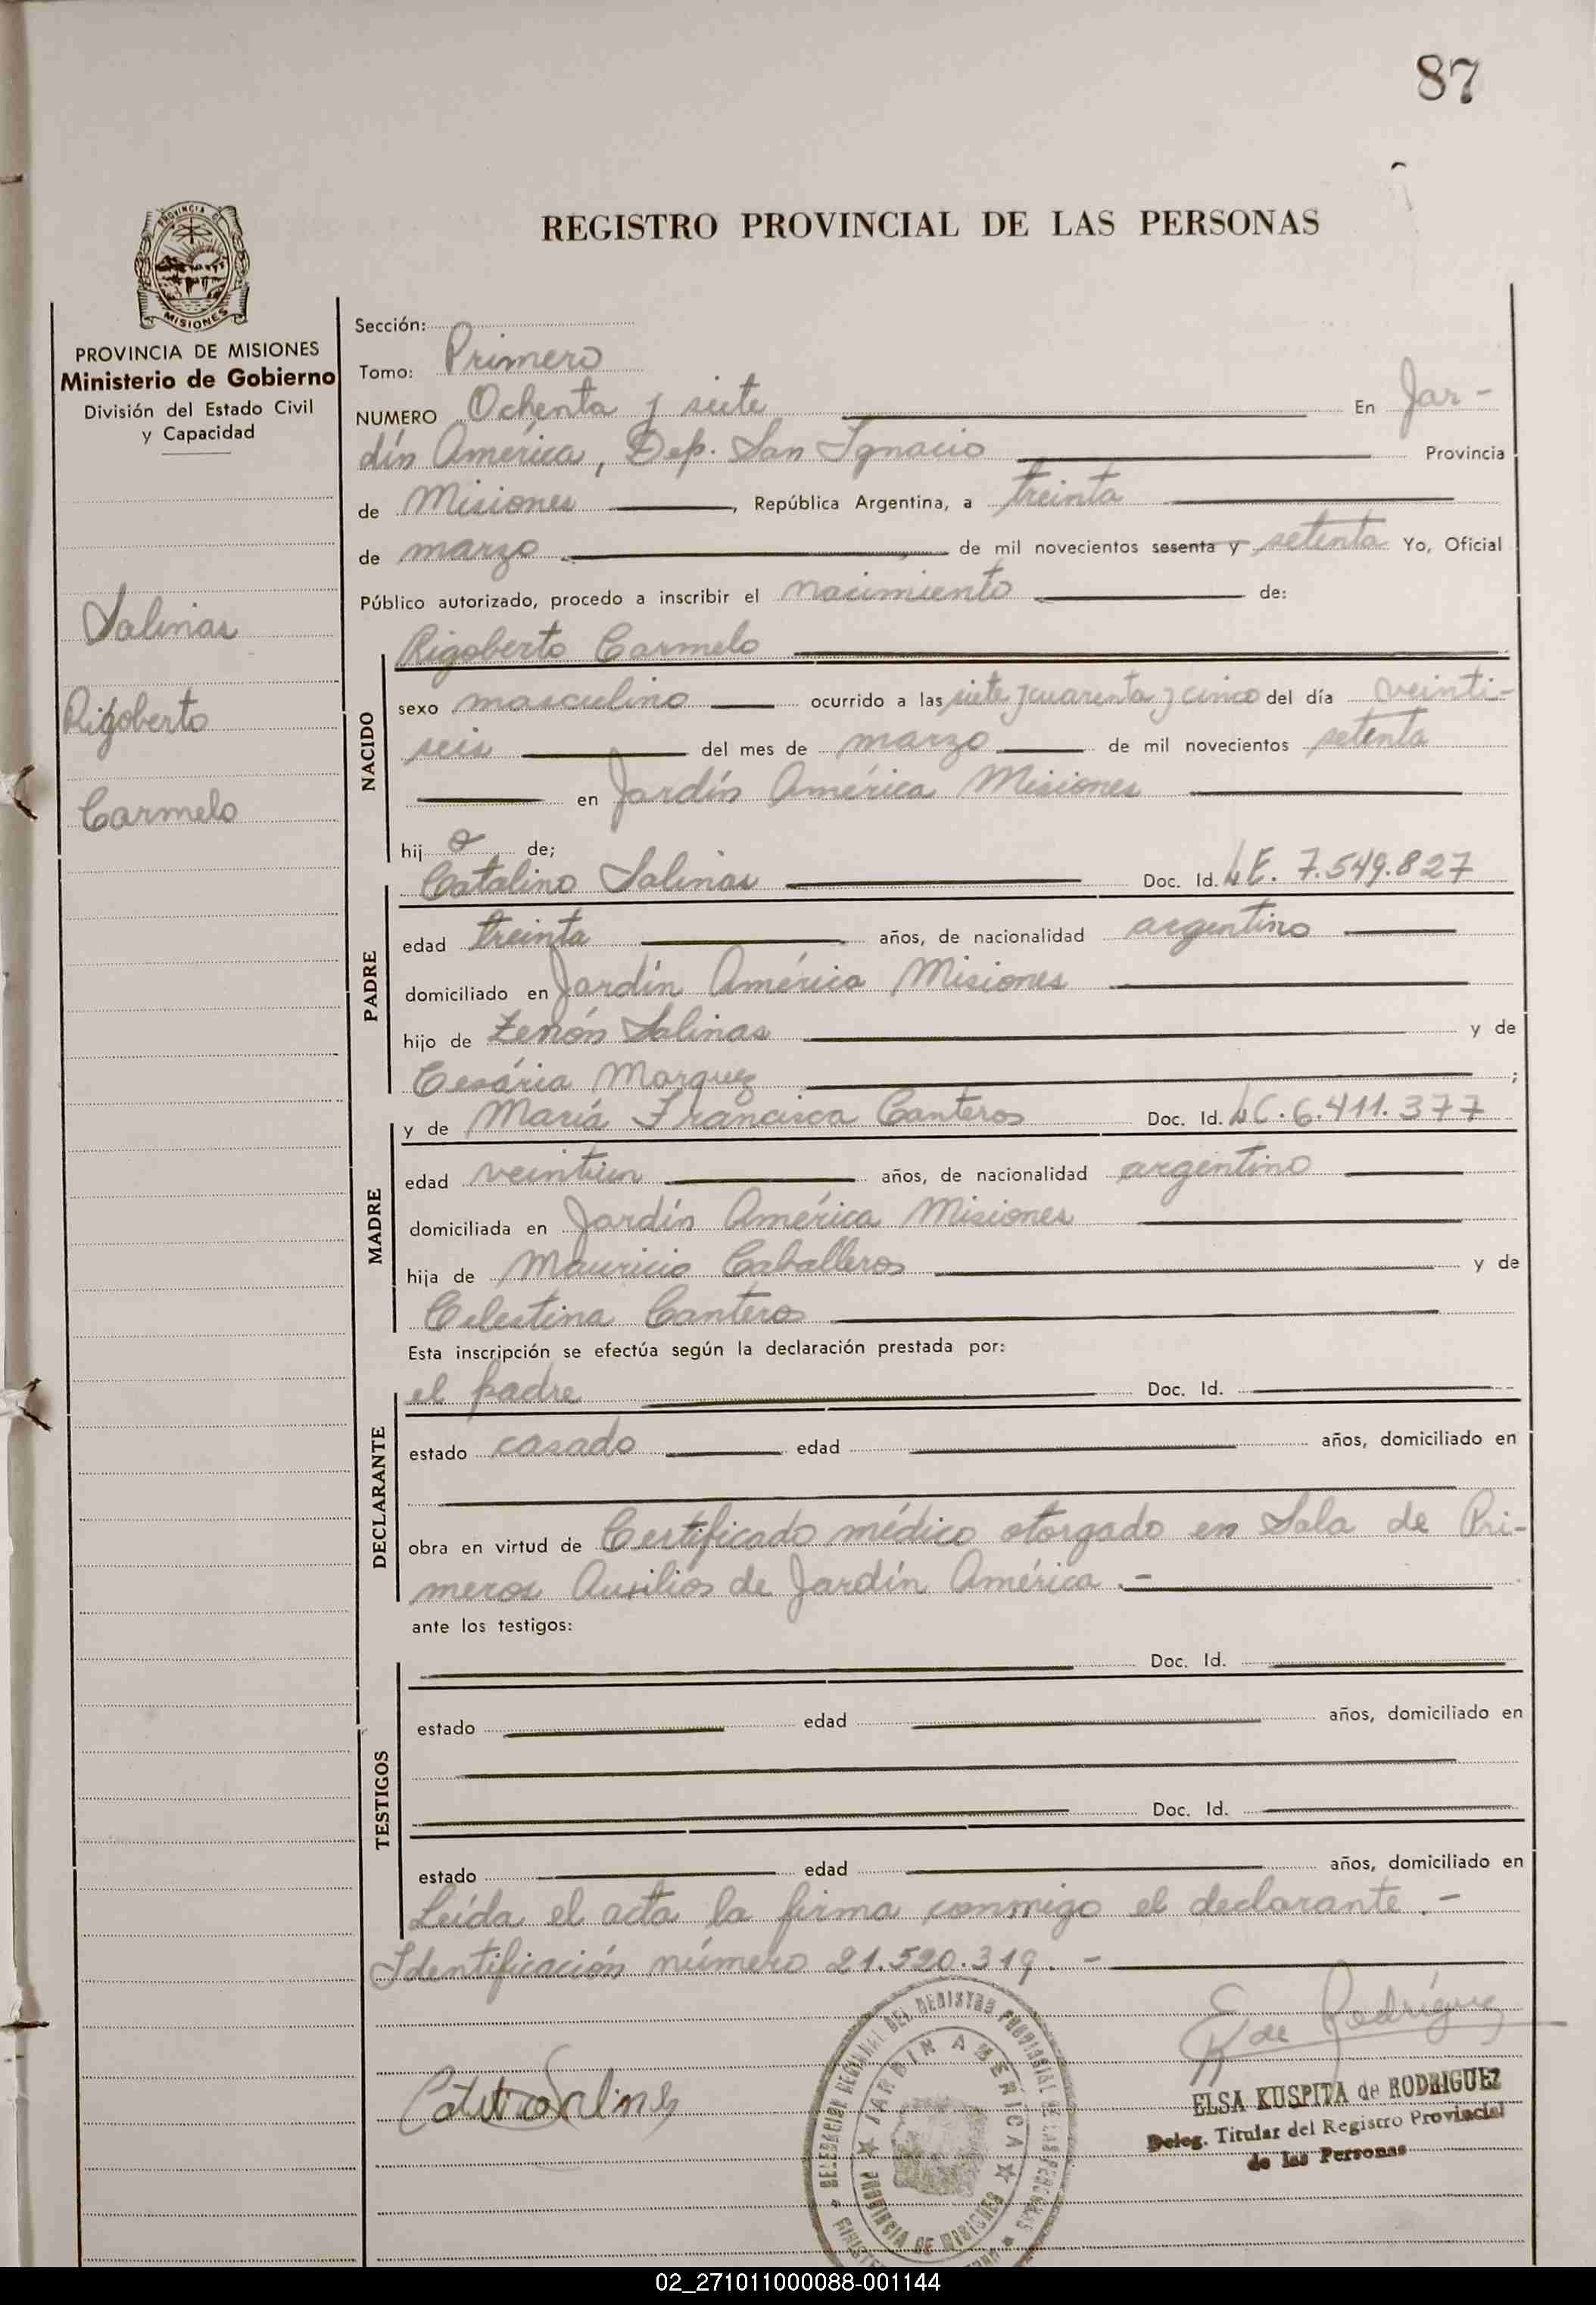 87
REGISTRO PROVINCIAL DE LAS PERSONAS
PROVINCIA DE
MISIONES
PROVINCIA DE MISIONES
Ministerio de Gobierno
División del Estado Civil
y Capacidad
Salinas
Rigoberto
Carmelo
Sección:
Tomo: Primero
NUMERO Ochenta y siete En Jar-
dín América, Dep. San Ignacio Provincia
de Misiones, República Argentina, a treinta
de marzo de mil novecientos sesenta y setenta Yo, Oficial
Público autorizado, procedo a inscribir el nacimiento de:
Rigoberto Carmelo
NACIDO
sexo masculino ocurrido a las siete y cuarenta y cinco del día veinti-
seis del mes de marzo de mil novecientos setenta
en Jardín América Misiones
hijo de;
Catalino Salinas Doc. Id. LE. 7.549.827
PADRE
edad treinta años, de nacionalidad argentino
domiciliado en Jardín América Misiones
hijo de Zenón Salinas y de
Cesária Marquez ;
y de María Francisca Canteros Doc. Id. LC. 6.411.377
MADRE
edad veintiun años, de nacionalidad argentino
domiciliada en Jardín América Misiones
hija de Mauricio Caballeros y de
Celestina Canteros
Esta inscripción se efectúa según la declaración prestada por:
el padre Doc. Id.
DECLARANTE
estado casado edad años, domiciliado en
obra en virtud de Certificado médico otorgado en Sala de Pri-
meros Auxilios de Jardín América.-
ante los testigos:
Doc. Id.
TESTIGOS
estado edad años, domiciliado en
Doc. Id.
estado edad años, domiciliado en
Leída el acta la firma conmigo el declarante.-
Identificación número 21.520.319.-
E K de Rodríguez
Catalino Salinas
DELEGACION REGIONAL DEL REGISTRO PROVINCIAL DE LAS PERSONAS
JARDIN AMERICA
PROVINCIA DE MISIONES
ELSA KUSPITA de RODRIGUEZ
Deleg. Titular del Registro Provincial
de las Personas
02_271011000088-001144